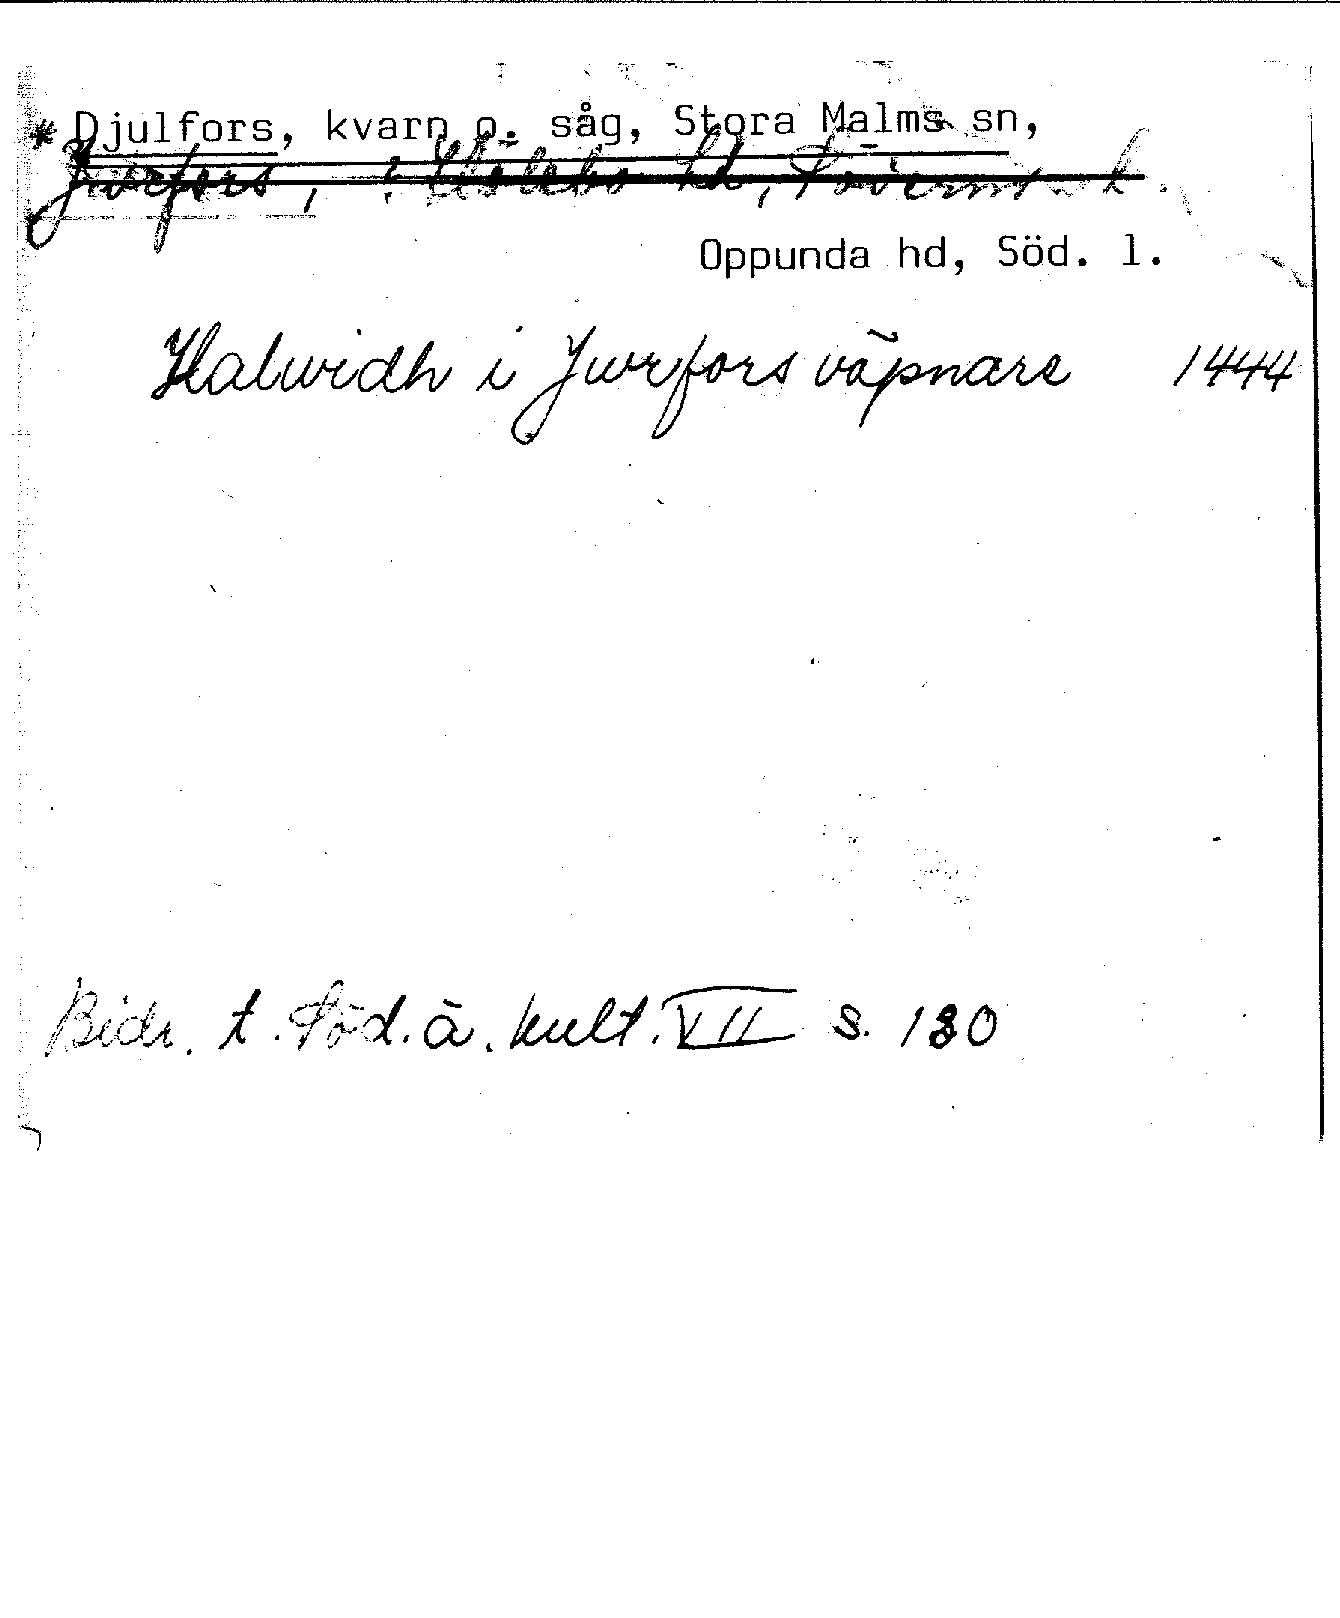 * Djulfors, kvarn o. såg, Stora Malms sn,
Jwrfors, ? Hölebo hd, Söderml.
Oppunda hd, Söd. l.
Halwidh i Jwrfors väpnare 1444
Bidr. t. Söd. ä. kult. VII s. 130